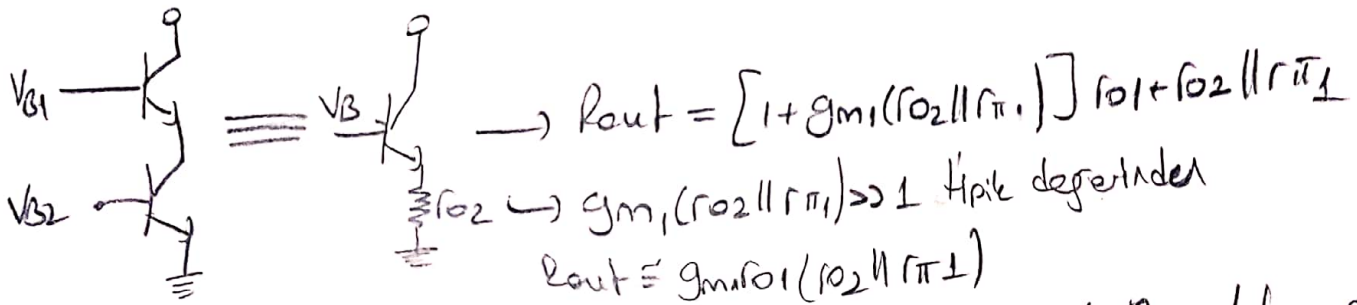 VB1
VB2
VB
ro2
→ Rout = [1+gm1(ro2||rπ1)] ro1+ro2||rπ1
↪ gm1(ro2||rπ1)>>1 tipik değerinden
Rout ≅ gm1ro1(ro2||rπ1)